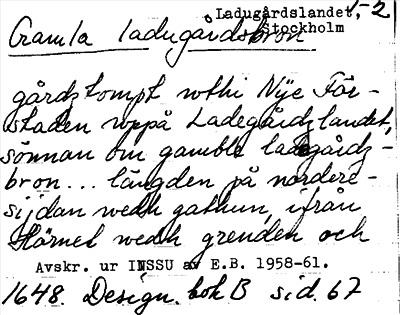 Ladugårdslandet, 1-2
Stockholm
Gamla ladugårdsbron
gårdztompt wthi Nÿe För-
staden wppå Ladegårdzlandet,
sönnan om gamble ladegårdz-
bron... längden på nordere-
sijdan wedh gathun, ifrån
Hörnet wedh grenden och
Avskr. ur INSSU av E.B. 1958-61.
1648. Design. bok B sid. 67